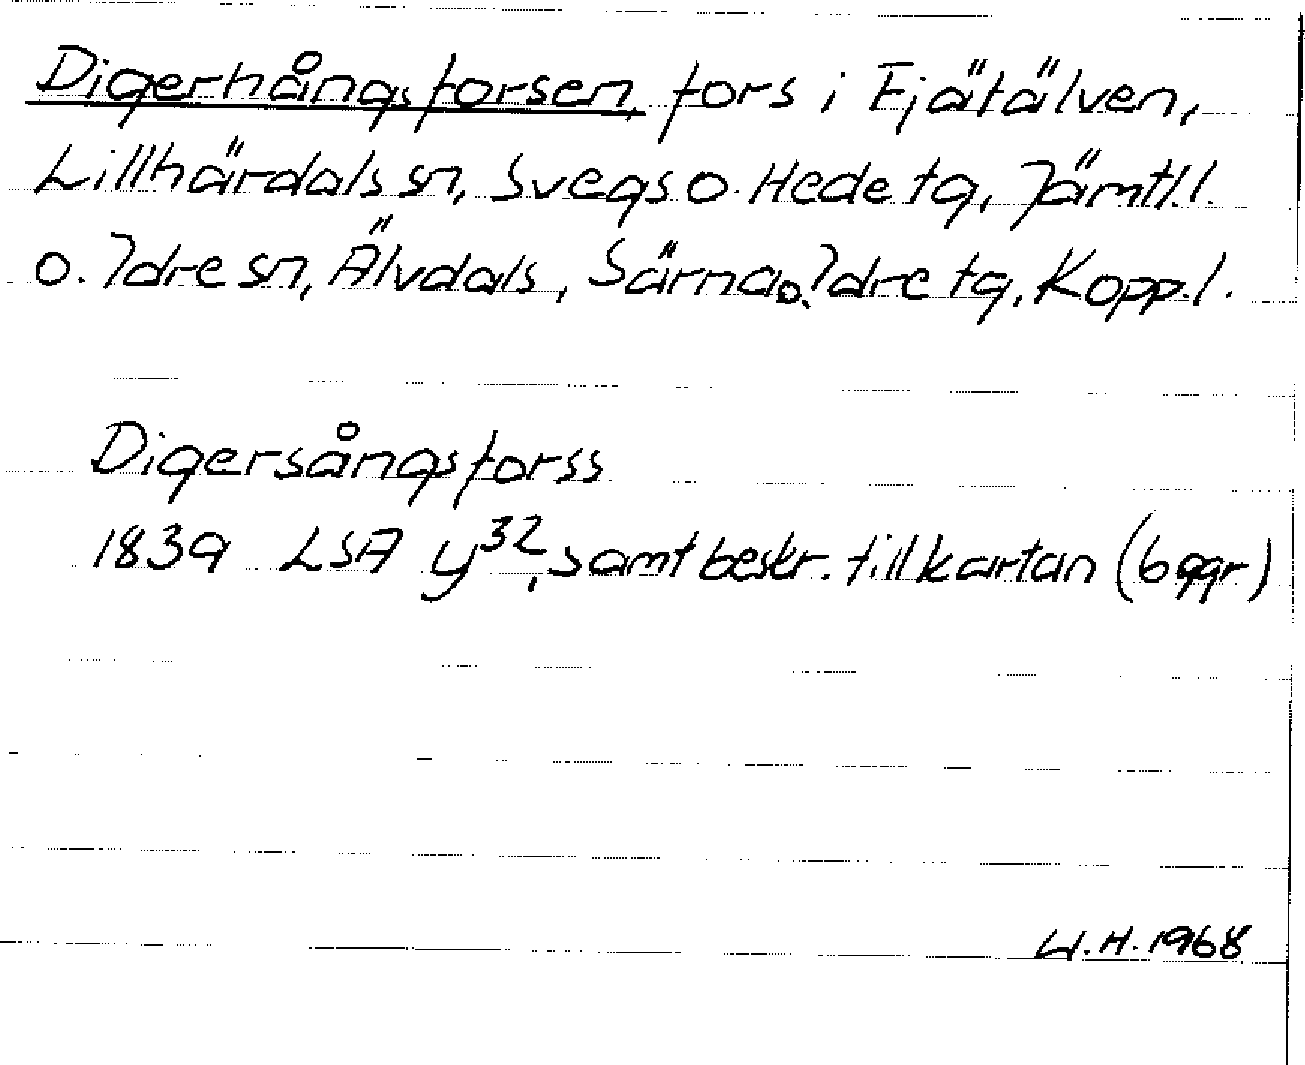 Digerhångsforsen, fors i Fjätälven,
Lillhärdals sn, Svegs o. Hede tg, Jämtl.l.
o. Idre sn, Älvdals, Särna o. Idre tg, Kopp.l.
Digersångsforss
1839 LSA y³², samt beskr. till kartan (6 ggr)
W.H. 1968